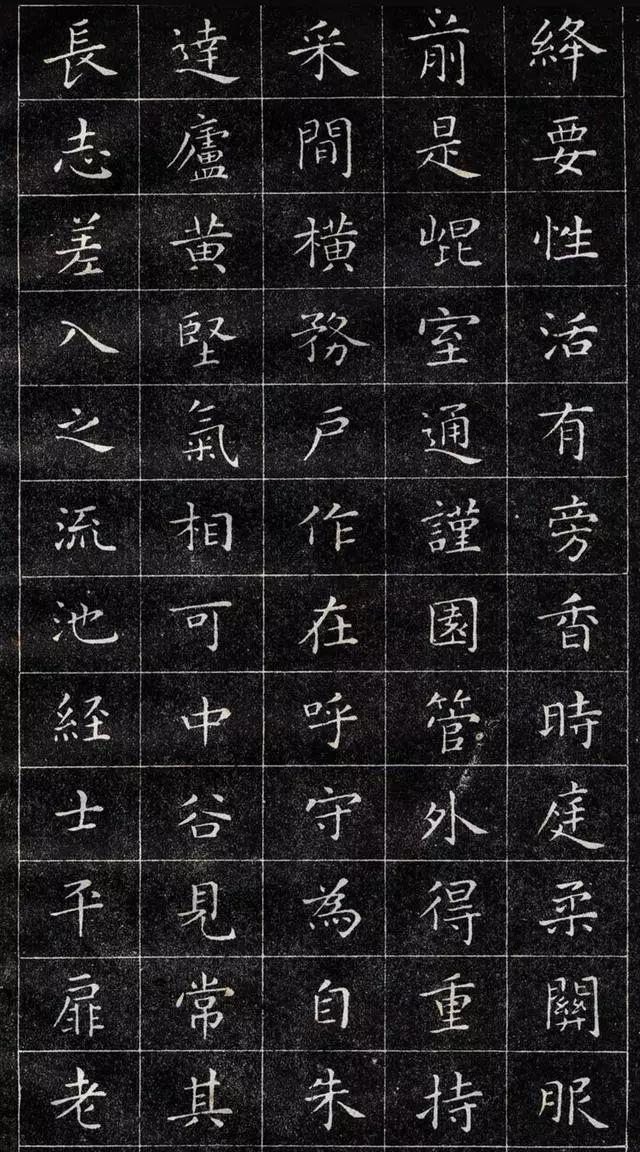 絳要性活有旁香時庭柔關服
前是崐室通謹園管外得重持
采間横務户作在呼守為自朱
達廬黄堅氣相可中谷見常其
長志差入之流池経士平扉老